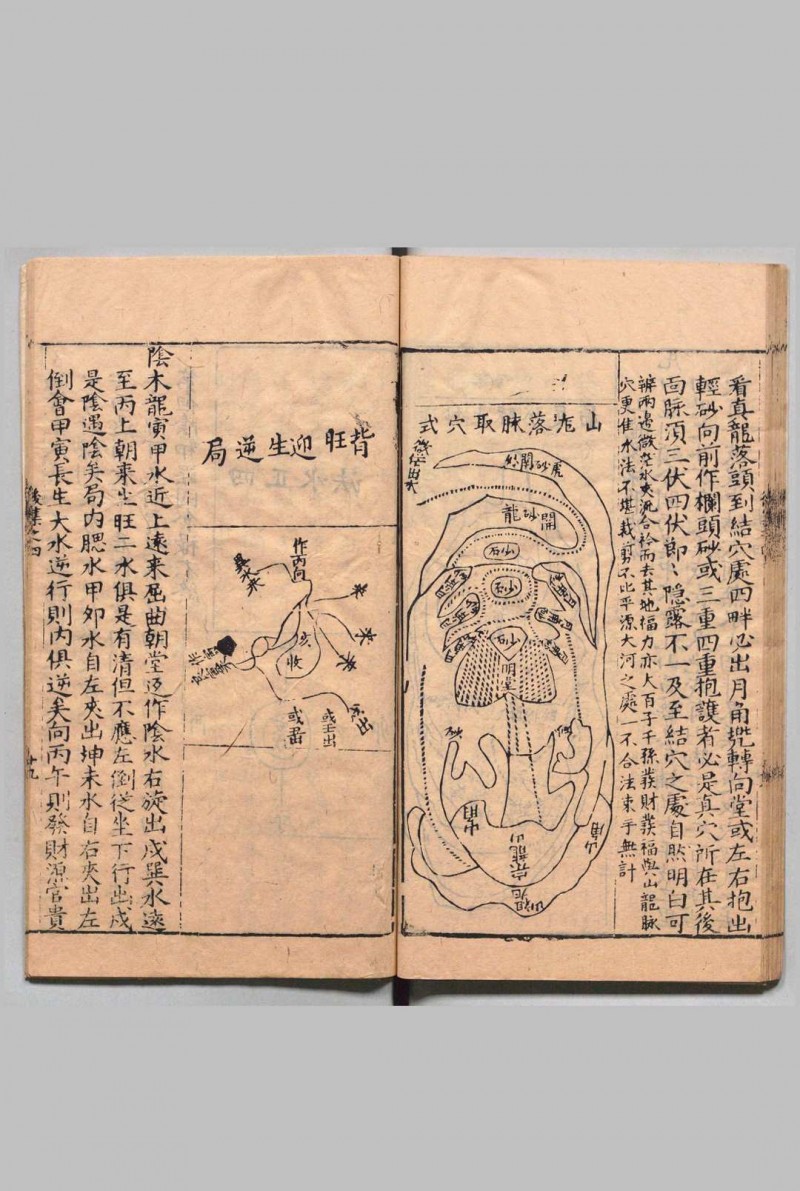 看真龍落頭到結穴處四畔必出月角㙡轉向堂或左右抱出
輕砂向前作欄頭砂或三重四重抱護者必是真穴所在其後
面脉頂三伏四伏節〻隱露不一及至結穴之處自然明白可
辨兩邊微茫水夾流合衿而去其地福力亦大百子千孫發財發福與山龍脉
穴更佳水法不堪裁剪不比平源大河之處一不合法束手無計
山龙落脉取穴式
虎砂開結
開砂龍
砂石
砂石
砂石
明堂
砂
山龍宗
山祖龙
背旺迎生逆局
作丙向
來
來
來
亥
收
或出
或壬出
陰木龍寅甲水近上遠來屈曲朝堂迈作陰水右旋出戍巽水遠
至丙上朝來生旺二水俱是有清但不應左倒從坐下行出戍
是陰遇陰矣局内腮水甲夘水自左夾出坤未水自右夾出左
倒會甲寅長生大水逆行則内俱逆矣向丙午則發財源富貴
後集之四
廿九